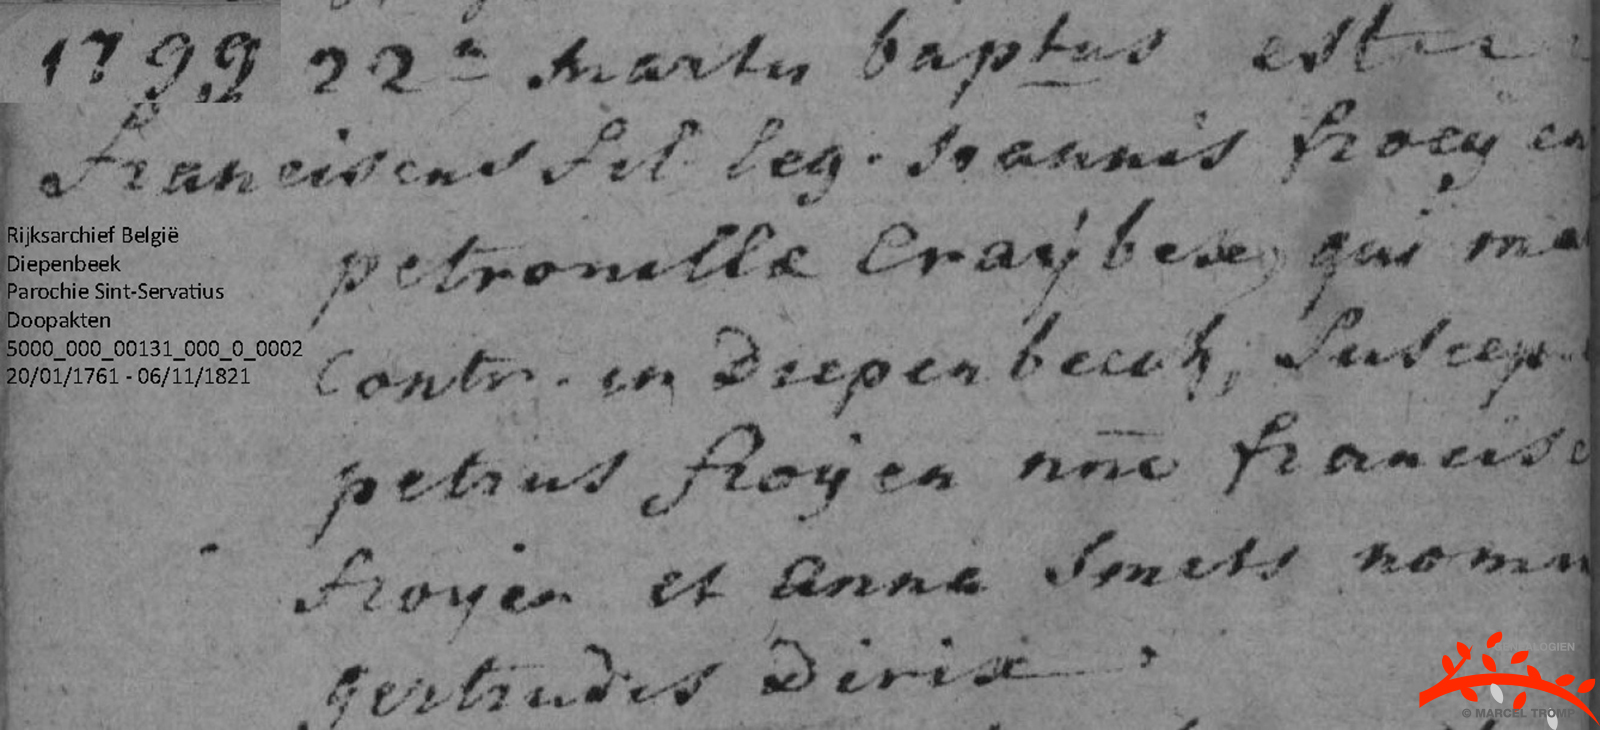 1799 22a martii baptus est
Franciscus fil leg. Joannis froeyen
petronillæ Craÿbex, qui ma
Contr. in Diepenbeeck, Suscep
petrus froÿen nõie francisc
froyen et anna Smets nomi
gertrudis Dirix
Rijksarchief België
Diepenbeek
Parochie Sint-Servatius
Doopakten
5000_000_00131_000_0_0002
20/01/1761 - 06/11/1821
GENEALOGIEN
© MARCEL TROMP